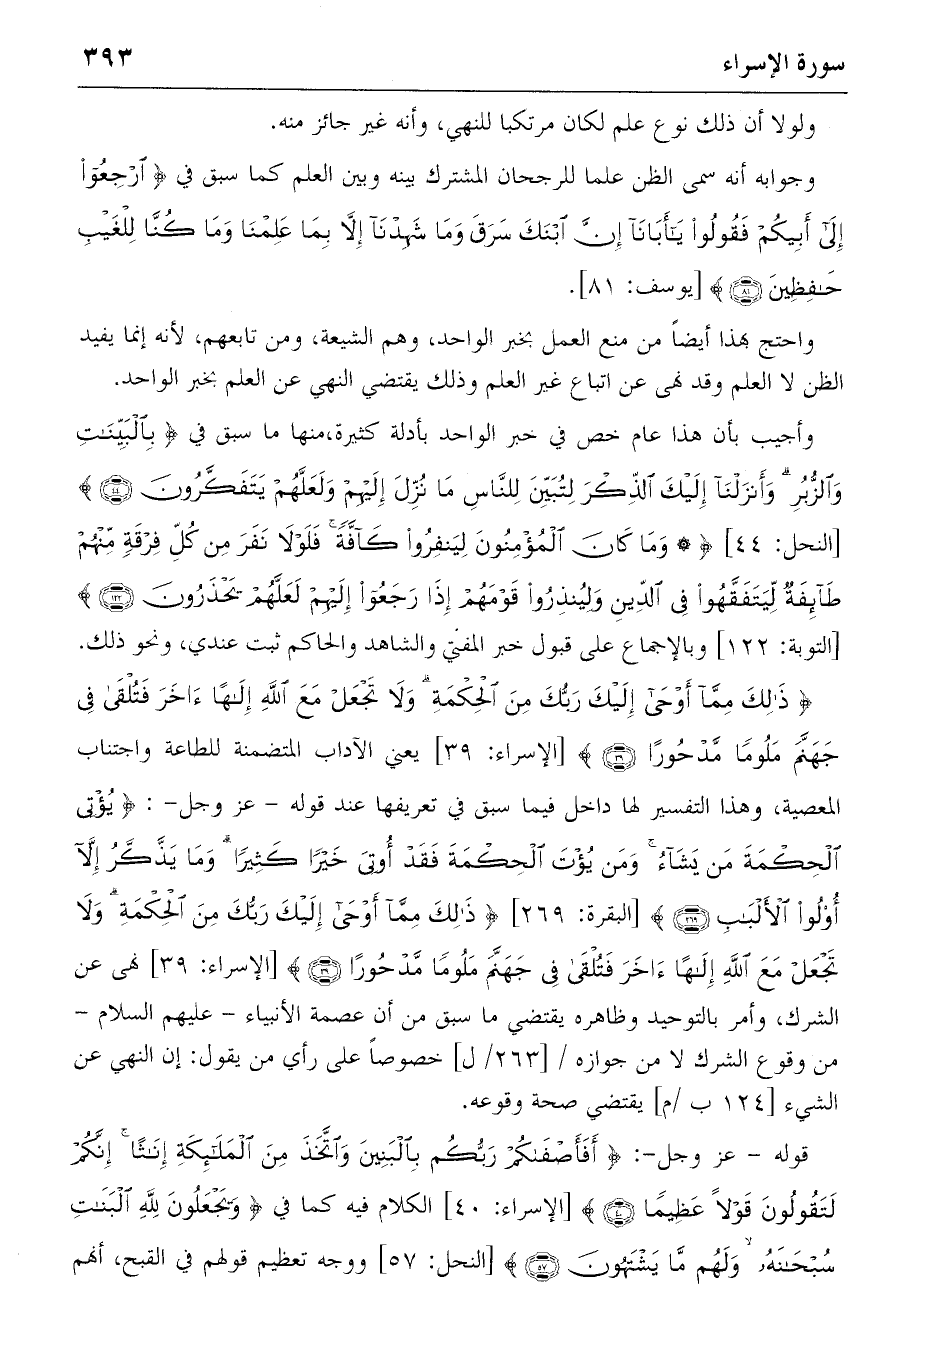 سورة الإسراء ٣٩٣
ولولا أن ذلك نوع علم لكان مرتكبا للنهي، وأنه غير جائز منه.
وجوابه أنه سمى الظن علما للرجحان المشترك بينه وبين العلم كما سبق في ﴿ ٱرْجِعُوٓا۟
إِلَىٰٓ أَبِيكُمْ فَقُولُوا۟ يَـٰٓأَبَانَآ إِنَّ ٱبْنَكَ سَرَقَ وَمَا شَهِدْنَآ إِلَّا بِمَا عَلِمْنَا وَمَا كُنَّا لِلْغَيْبِ
حَـٰفِظِينَ ۝٨١ ﴾ [يوسف: ٨١].
واحتج بهذا أيضاً من منع العمل بخبر الواحد، وهم الشيعة، ومن تابعهم، لأنه إنما يفيد
الظن لا العلم وقد نهى عن اتباع غير العلم وذلك يقتضي النهي عن العلم بخبر الواحد.
وأجيب بأن هذا عام خص في خبر الواحد بأدلة كثيرة،منها ما سبق في ﴿ بِٱلْبَيِّنَـٰتِ
وَٱلزُّبُرِ ۗ وَأَنزَلْنَآ إِلَيْكَ ٱلذِّكْرَ لِتُبَيِّنَ لِلنَّاسِ مَا نُزِّلَ إِلَيْهِمْ وَلَعَلَّهُمْ يَتَفَكَّرُونَ ۝٤٤ ﴾
[النحل: ٤٤] ﴿ ۞ وَمَا كَانَ ٱلْمُؤْمِنُونَ لِيَنفِرُوا۟ كَآفَّةً ۚ فَلَوْلَا نَفَرَ مِن كُلِّ فِرْقَةٍ مِّنْهُمْ
طَآئِفَةٌ لِّيَتَفَقَّهُوا۟ فِى ٱلدِّينِ وَلِيُنذِرُوا۟ قَوْمَهُمْ إِذَا رَجَعُوٓا۟ إِلَيْهِمْ لَعَلَّهُمْ يَحْذَرُونَ ۝١٢٢ ﴾
[التوبة: ١٢٢] وبالإجماع على قبول خبر المفتي والشاهد والحاكم ثبت عندي، ونحو ذلك.
﴿ ذَٰلِكَ مِمَّآ أَوْحَىٰٓ إِلَيْكَ رَبُّكَ مِنَ ٱلْحِكْمَةِ ۗ وَلَا تَجْعَلْ مَعَ ٱللَّهِ إِلَـٰهًا ءَاخَرَ فَتُلْقَىٰ فِى
جَهَنَّمَ مَلُومًا مَّدْحُورًا ۝٣٩ ﴾ [الإسراء: ٣٩] يعني الآداب المتضمنة للطاعة واجتناب
المعصية، وهذا التفسير لها داخل فيما سبق في تعريفها عند قوله - عز وجل- : ﴿ يُؤْتِى
ٱلْحِكْمَةَ مَن يَشَآءُ ۚ وَمَن يُؤْتَ ٱلْحِكْمَةَ فَقَدْ أُوتِىَ خَيْرًا كَثِيرًا ۗ وَمَا يَذَّكَّرُ إِلَّآ
أُو۟لُوا۟ ٱلْأَلْبَـٰبِ ۝٢٦٩ ﴾ [البقرة: ٢٦٩] ﴿ ذَٰلِكَ مِمَّآ أَوْحَىٰٓ إِلَيْكَ رَبُّكَ مِنَ ٱلْحِكْمَةِ ۗ وَلَا
تَجْعَلْ مَعَ ٱللَّهِ إِلَـٰهًا ءَاخَرَ فَتُلْقَىٰ فِى جَهَنَّمَ مَلُومًا مَّدْحُورًا ۝٣٩ ﴾ [الإسراء: ٣٩] نهى عن
الشرك، وأمر بالتوحيد وظاهره يقتضي ما سبق من أن عصمة الأنبياء - عليهم السلام -
من وقوع الشرك لا من جوازه / [٢٦٣/ ل] خصوصاً على رأي من يقول: إن النهي عن
الشيء [١٢٤ ب /م] يقتضي صحة وقوعه.
قوله - عز وجل-: ﴿ أَفَأَصْفَىٰكُمْ رَبُّكُم بِٱلْبَنِينَ وَٱتَّخَذَ مِنَ ٱلْمَلَـٰٓئِكَةِ إِنَـٰثًا ۚ إِنَّكُمْ
لَتَقُولُونَ قَوْلًا عَظِيمًا ۝٤٠ ﴾ [الإسراء: ٤٠] الكلام فيه كما في ﴿ وَيَجْعَلُونَ لِلَّهِ ٱلْبَنَـٰتِ
سُبْحَـٰنَهُۥ ۙ وَلَهُم مَّا يَشْتَهُونَ ۝٥٧ ﴾ [النحل: ٥٧] ووجه تعظيم قولهم في القبح، أنهم